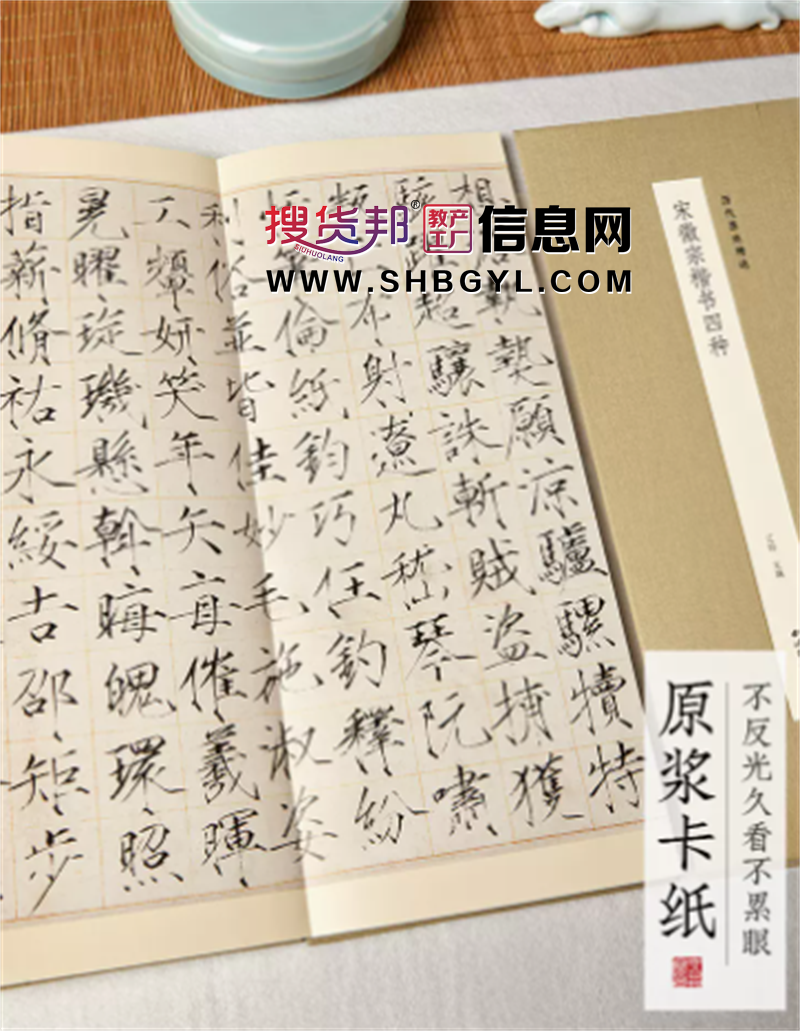 搜货邦®
SIDHUOLANG
教产
工厂
信息网
WWW.SHBGYL.COM
宋徽宗楷书四种
執熱願涼驢騾犢特
駭超驤誅斬賊盜捕獲
叛布射遼丸嵇琴阮嘯
恬倫紙鈞巧任釣釋紛
利俗並皆佳妙毛施淑姿
工顰妍笑年矢每催羲暉
晃曜琁璣懸斡晦魄環照
指薪脩祜永綏吉邵矩步
不反光久看不累眼
原浆卡纸